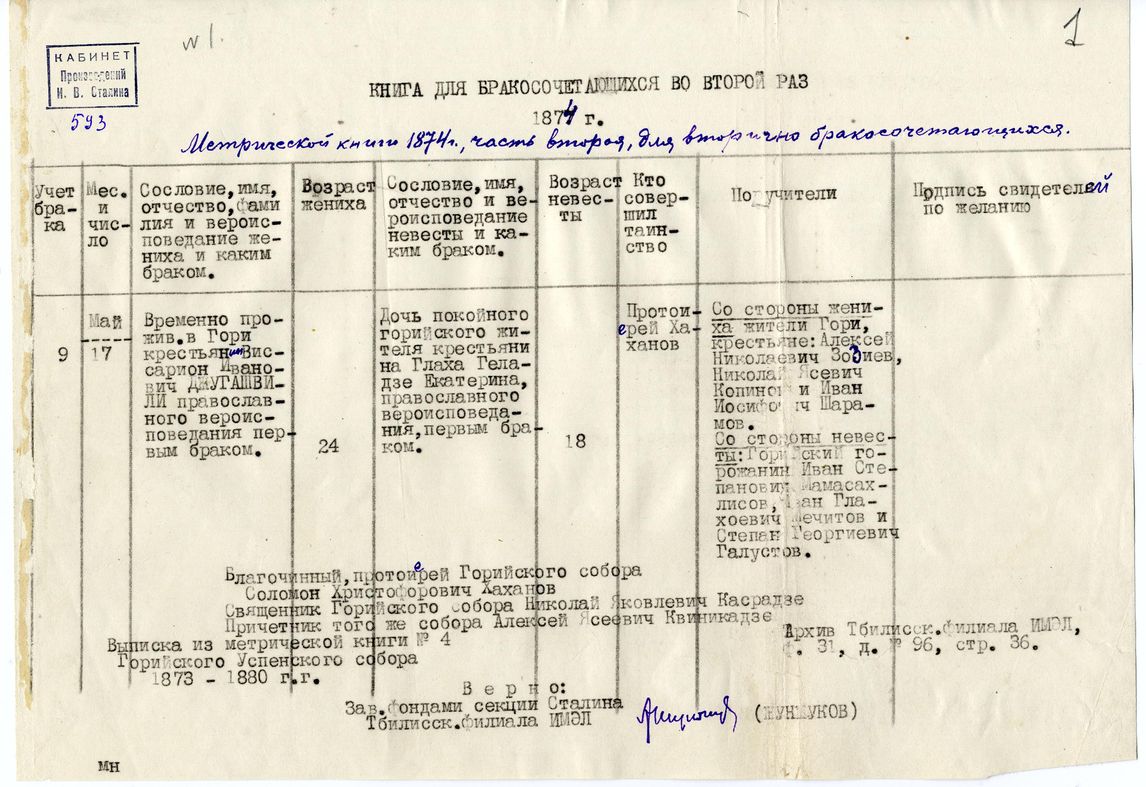 № 1.
1
КАБИНЕТ
Произведений
И. В. Сталина
593
КНИГА ДЛЯ БРАКОСОЧЕТАЮЩИХСЯ ВО ВТОРОЙ РАЗ
1874 г.
Метрической книги 1874 г., часть вторая, для вторично бракосочетающихся.
Учет
бра-
ка
Мес.
и
чис-
ло
Сословие, имя,
отчество, фами
лия и вероис-
поведание же-
ниха и каким
браком.
Возраст
жениха
Сословие, имя,
отчество и ве-
роисповедание
невесты и ка-
ким браком.
Возраст
невес-
ты
Кто
совер-
шил
таин-
ство
Поручители
Подпись свидетелей
по желанию
9
Май
17
Временно про-
жив. в Гори
крестьянин Вис-
сарион Ивано-
вич ДЖУГАШВИ-
ЛИ православ-
ного вероис-
поведания пер-
вым браком.
24
Дочь покойного
горийского жи-
теля крестьяни
на Глаха Гела-
дзе Екатерина,
православного
вероисповеда-
ния, первым бра-
ком.
18
Протои-
ерей Ха-
ханов
Со стороны жени-
ха жители Гори,
крестьяне: Алексей
Николаевич Зозиев,
Николай Ясевич
Копинов и Иван
Иосифович Шара-
мов.
Со стороны невес-
ты: Горийский го-
рожанин Иван Сте-
панович Мамасах-
лисов, Иван Гла-
хоевич Мечитов и
Степан Георгиевич
Галустов.
Благочинный, протоиерей Горийского собора
Соломон Христофорович Хаханов
Священник Горийского собора Николай Яковлевич Касрадзе
Причетник того же собора Алексей Ясеевич Квиникадзе
Выписка из метрической книги № 4
Горийского Успенского собора
1873 - 1880 г.г.
Архив Тбилисск. филиала ИМЭЛ,
ф. 31, д. № 96, стр. 36.
Верно:
Зав. фондами секции Сталина
Тбилисск. филиала ИМЭЛ
(ЖУНЖУКОВ)
мн